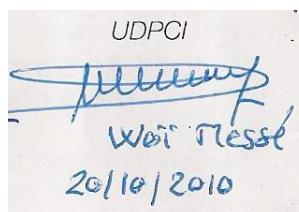 UDPCI
Woï Messé
20/10/2010